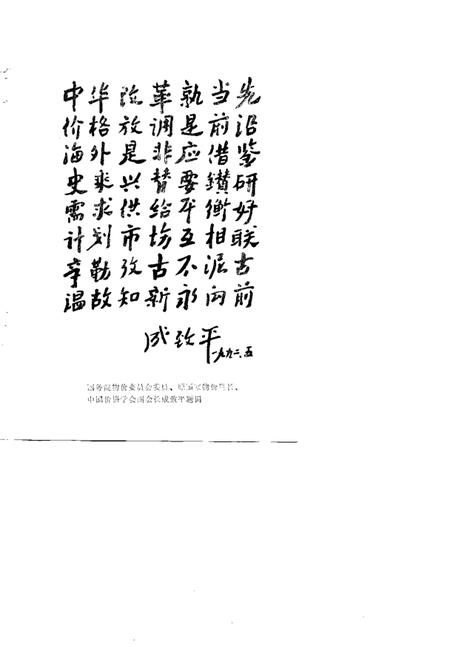 中华改革孰当先
价格放调是前沿
海外是非应借鉴
史乘兴替要鑽研
需求供给平衡好
计划市场互相联
辛勤攷古不泥古
温故知新永向前
成致平
一九九二.五
国务院物价委员会委员、原国家物价局长、
中国价格学会副会长成致平题词